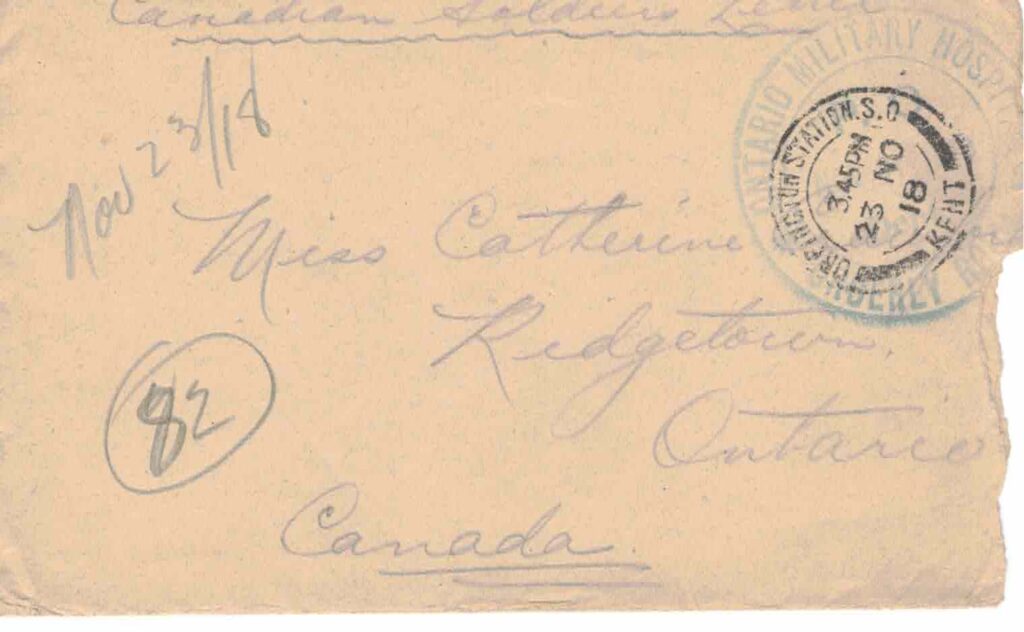 Canadian Soldiers Letter
Nov 23/18
ONTARIO MILITARY HOSPITAL
ORPINGTON STATION. S.O
KENT
3.45PM
23 NO
18
Miss Catherine
Ridgetown,
Ontario
82
Canada.